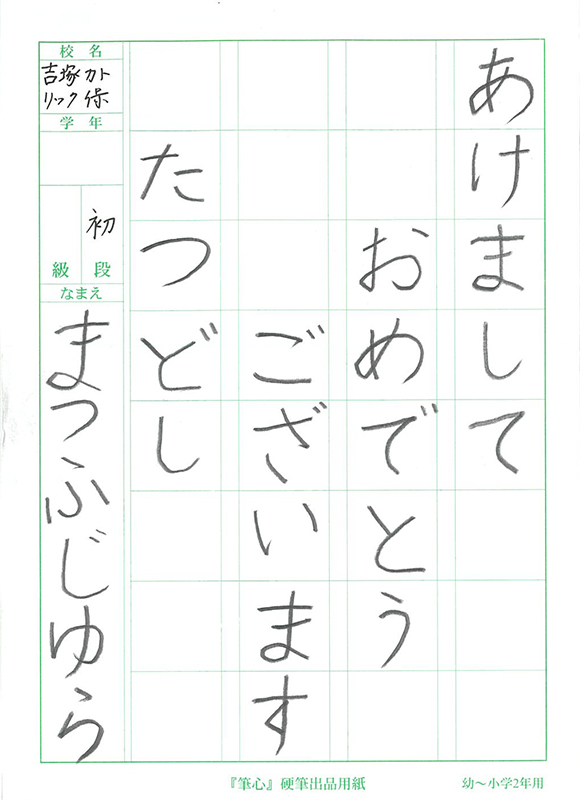 あけまして
おめでとう
ございます
たつどし
校名
吉塚カト
リック保
学年
初
級 段
なまえ
まつふじゆら
『筆心』硬筆出品用紙
幼～小学2年用